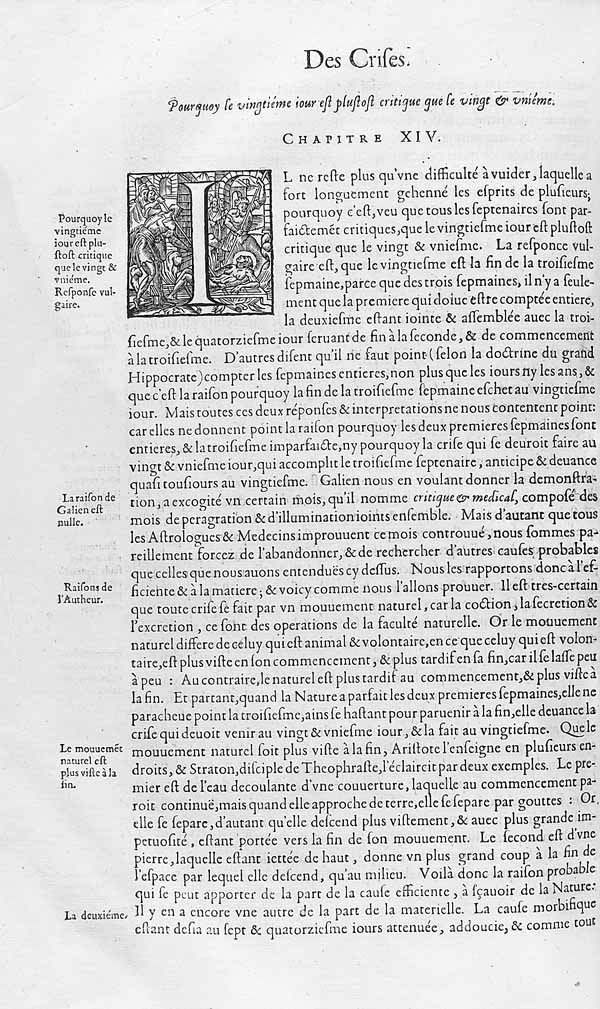 Des Criſes.
Pourquoy le vingtiéme iour eſt pluſtoſt critique que le vingt & vniéme.
CHAPITRE XIV.
IL ne reſte plus qu'vne difficulté à vuider, laquelle a
fort longuement gehenné les eſprits de pluſieurs;
pourquoy c'eſt, veu que tous les ſeptenaires ſont par-
faictemẽt critiques, que le vingtieſme iour eſt pluſtoſt
critique que le vingt & vnieſme. La reſponce vul-
gaire eſt, que le vingtieſme eſt la fin de la troiſieſme
ſepmaine, parce que des trois ſepmaines, il n'y a ſeule-
ment que la premiere qui doiue eſtre comptée entiere,
la deuxieſme eſtant iointe & aſſemblée auec la troi-
Pourquoy le
vingtiéme
iour eſt plu-
ſtoſt critique
que le vingt &
vniéme.
Reſponſe vul-
gaire.
ſieſme, & le quatorzieſme iour ſeruant de fin à la ſeconde, & de commencement
à la troiſieſme. D'autres diſent qu'il ne faut point (ſelon la doctrine du grand
Hippocrate) compter les ſepmaines entieres, non plus que les iours ny les ans, &
que c'eſt la raiſon pourquoy la fin de la troiſieſme ſepmaine eſchet au vingtieſme
iour. Mais toutes ces deux réponſes & interpretations ne nous contentent point:
car elles ne donnent point la raiſon pourquoy les deux premieres ſepmaines ſont
entieres, & la troiſieſme imparfaicte, ny pourquoy la criſe qui ſe deuroit faire au
vingt & vnieſme iour, qui accomplit le troiſieſme ſeptenaire, anticipe & deuance
quaſi touſiours au vingtieſme. Galien nous en voulant donner la demonſtra-
tion, a excogité vn certain mois, qu'il nomme critique & medical, compoſé des
mois de peragration & d'illumination ioints enſemble. Mais d'autant que tous
les Aſtrologues & Medecins improuuent ce mois controuué, nous ſommes pa-
reillement forcez de l'abandonner, & de rechercher d'autres cauſes probables
La raiſon de
Galien eſt
nulle.
que celles que nous auons entenduës cy deſſus. Nous les rapportons donc à l'ef-
ficiente & à la matiere; & voicy comme nous l'allons prouuer. Il eſt tres-certain
que toute criſe ſe fait par vn mouuement naturel, car la coction, la ſecretion &
Raiſons de
l'Autheur.
l'excretion, ce ſont des operations de la faculté naturelle. Or le mouuement
naturel differe de celuy qui eſt animal & volontaire, en ce que celuy qui eſt volon-
taire, eſt plus viſte en ſon commencement, & plus tardif en ſa fin, car il ſe laſſe peu
à peu : Au contraire, le naturel eſt plus tardif au commencement, & plus viſte à
la fin. Et partant, quand la Nature a parfait les deux premieres ſepmaines, elle ne
paracheue point la troiſieſme, ains ſe haſtant pour paruenir à la fin, elle deuance la
criſe qui deuoit venir au vingt & vnieſme iour, & la fait au vingtieſme. Que le
mouuement naturel ſoit plus viſte à la fin, Ariſtote l'enſeigne en pluſieurs en-
droits, & Straton, diſciple de Theophraſte, l'éclaircit par deux exemples. Le pre-
mier eſt de l'eau decoulante d'vne couuerture, laquelle au commencement pa-
Le mouuemẽt
naturel eſt
plus viſte à la
fin.
roit continuë, mais quand elle approche de terre, elle ſe ſepare par gouttes : Or,
elle ſe ſepare, d'autant qu'elle deſcend plus viſtement, & auec plus grande im-
petuoſité, eſtant portée vers la fin de ſon mouuement. Le ſecond eſt d'vne
pierre, laquelle eſtant iettée de haut, donne vn plus grand coup à la fin de
l'eſpace par lequel elle deſcend, qu'au milieu. Voilà donc la raiſon probable
qui ſe peut apporter de la part de la cauſe efficiente, à ſçauoir de la Nature.
Il y en a encore vne autre de la part de la materielle. La cauſe morbifique
La deuxiéme.
eſtant deſia au ſept & quatorzieſme iours attenuée, addoucie, & comme tout